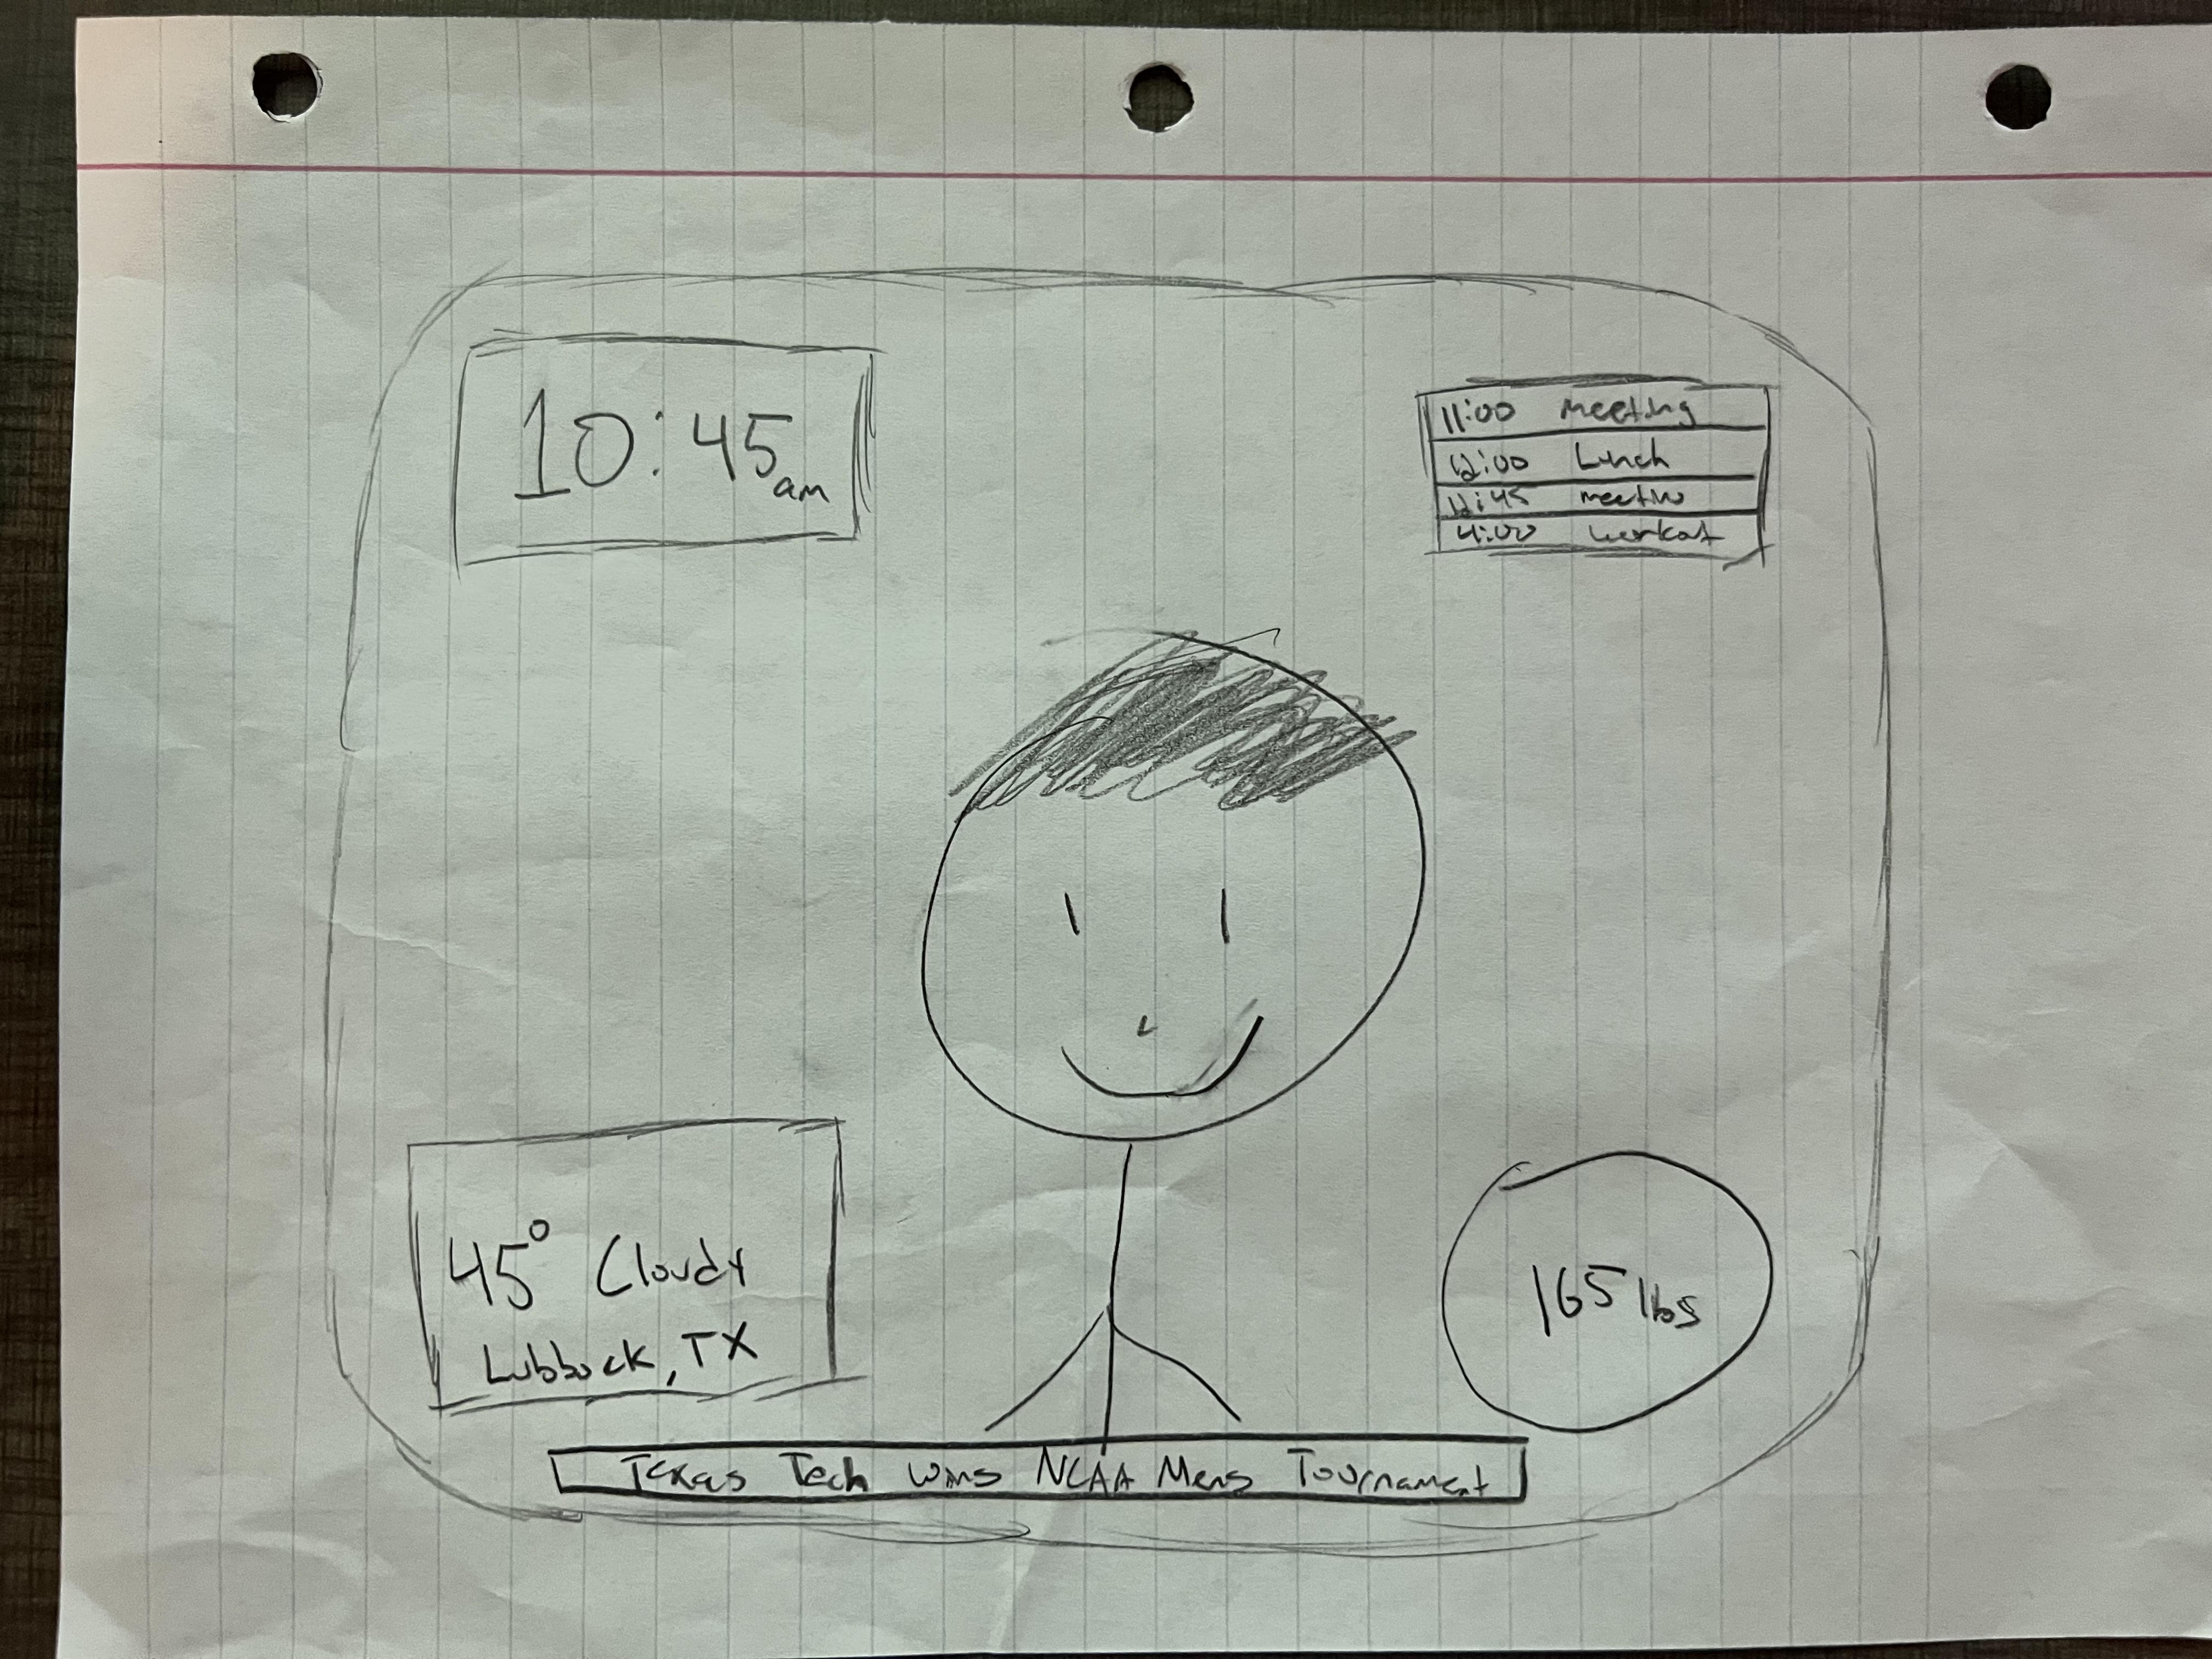 10:45 am
11:00 Meeting
12:00 Lunch
12:45 meetin
4:00 workout
45° Cloudy
Lubbock, TX
165 lbs
Texas Tech wins NCAA Mens Tournament